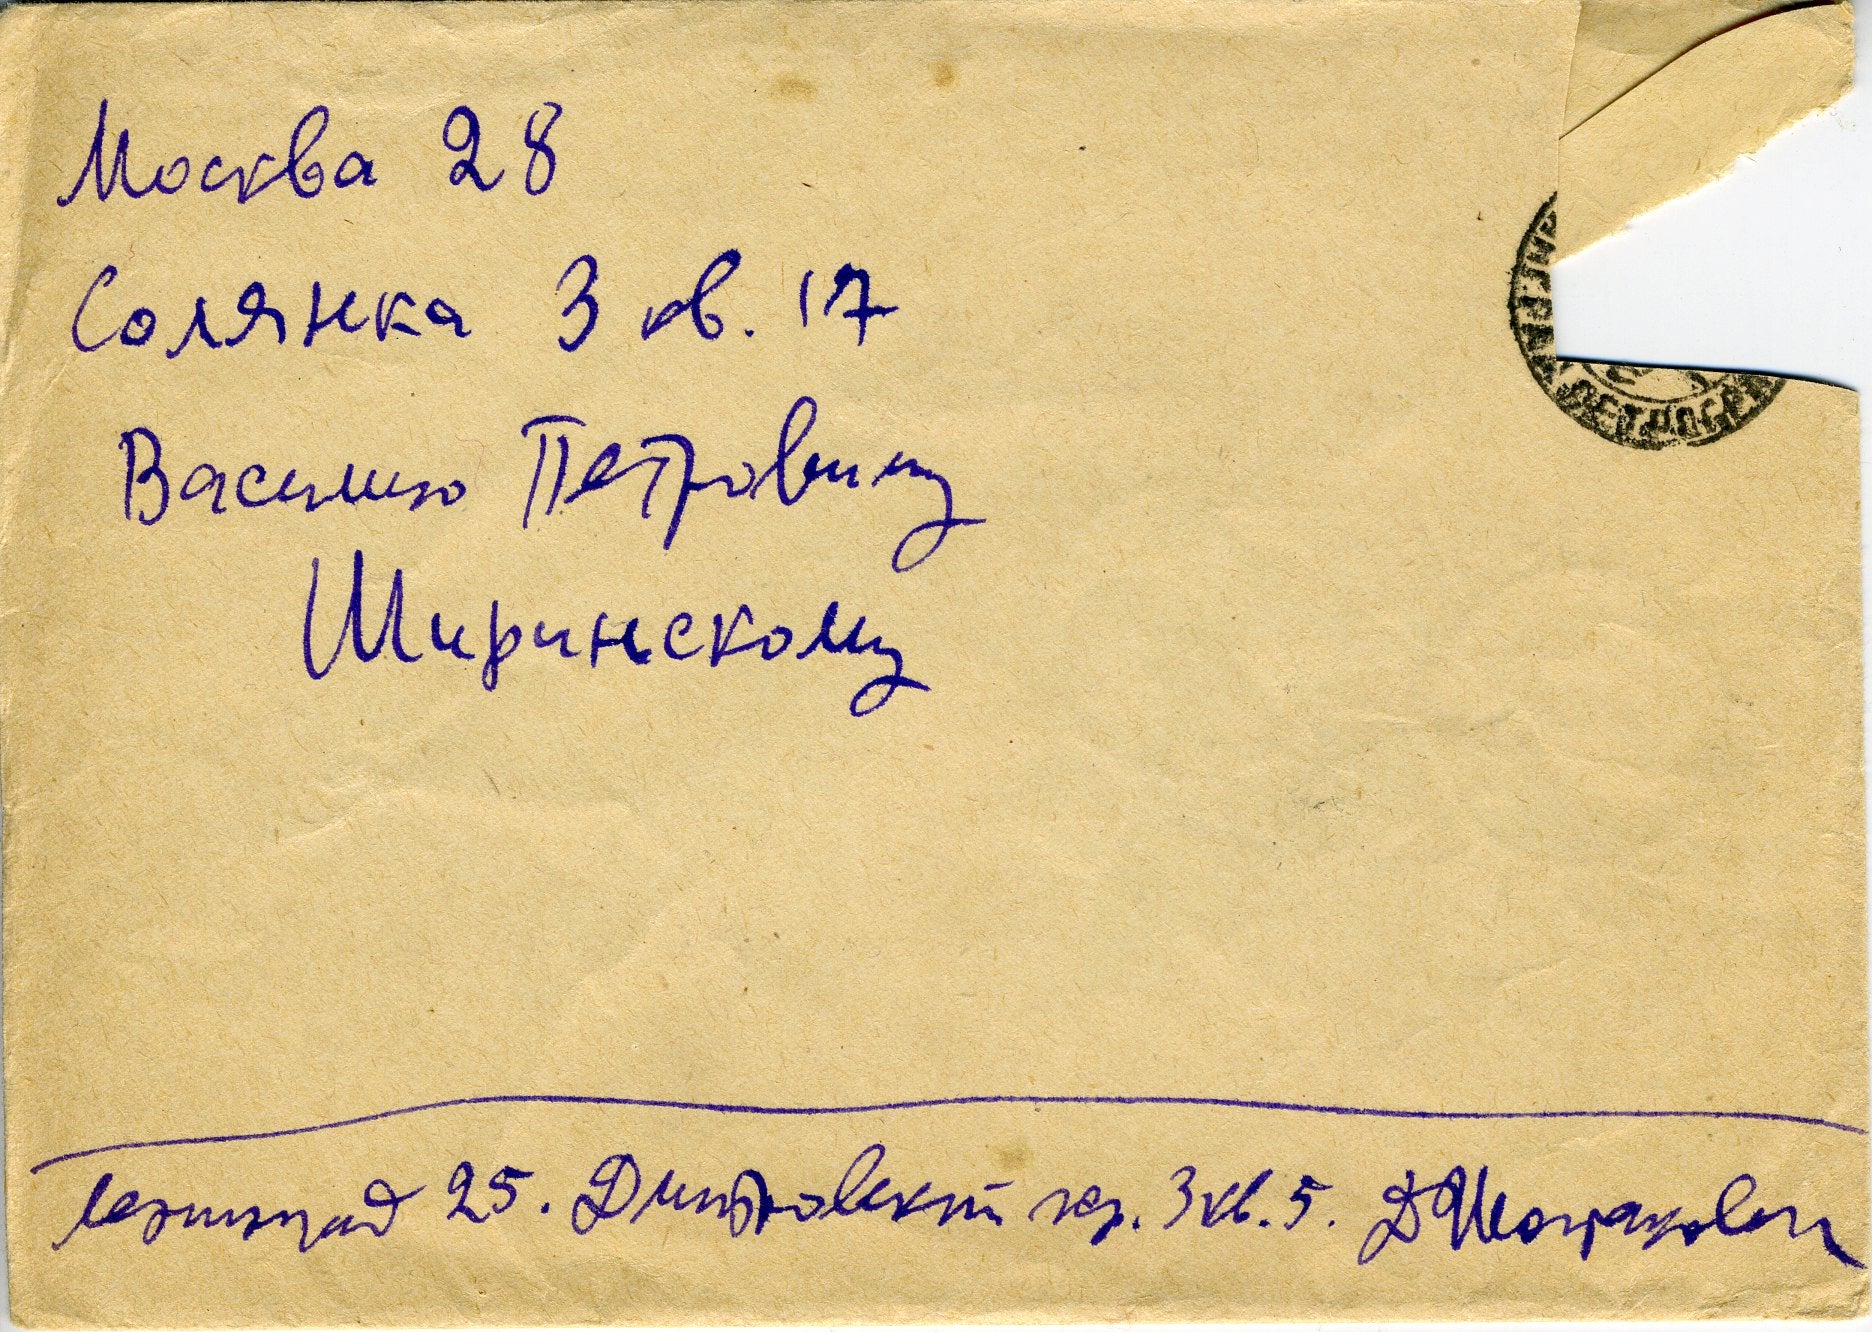 Москва 28
Солянка 3 кв. 17
Василию Петровичу
Ширинскому
Ленинград 25. Дмитровский пер. 3 кв. 5. Д Шостакович